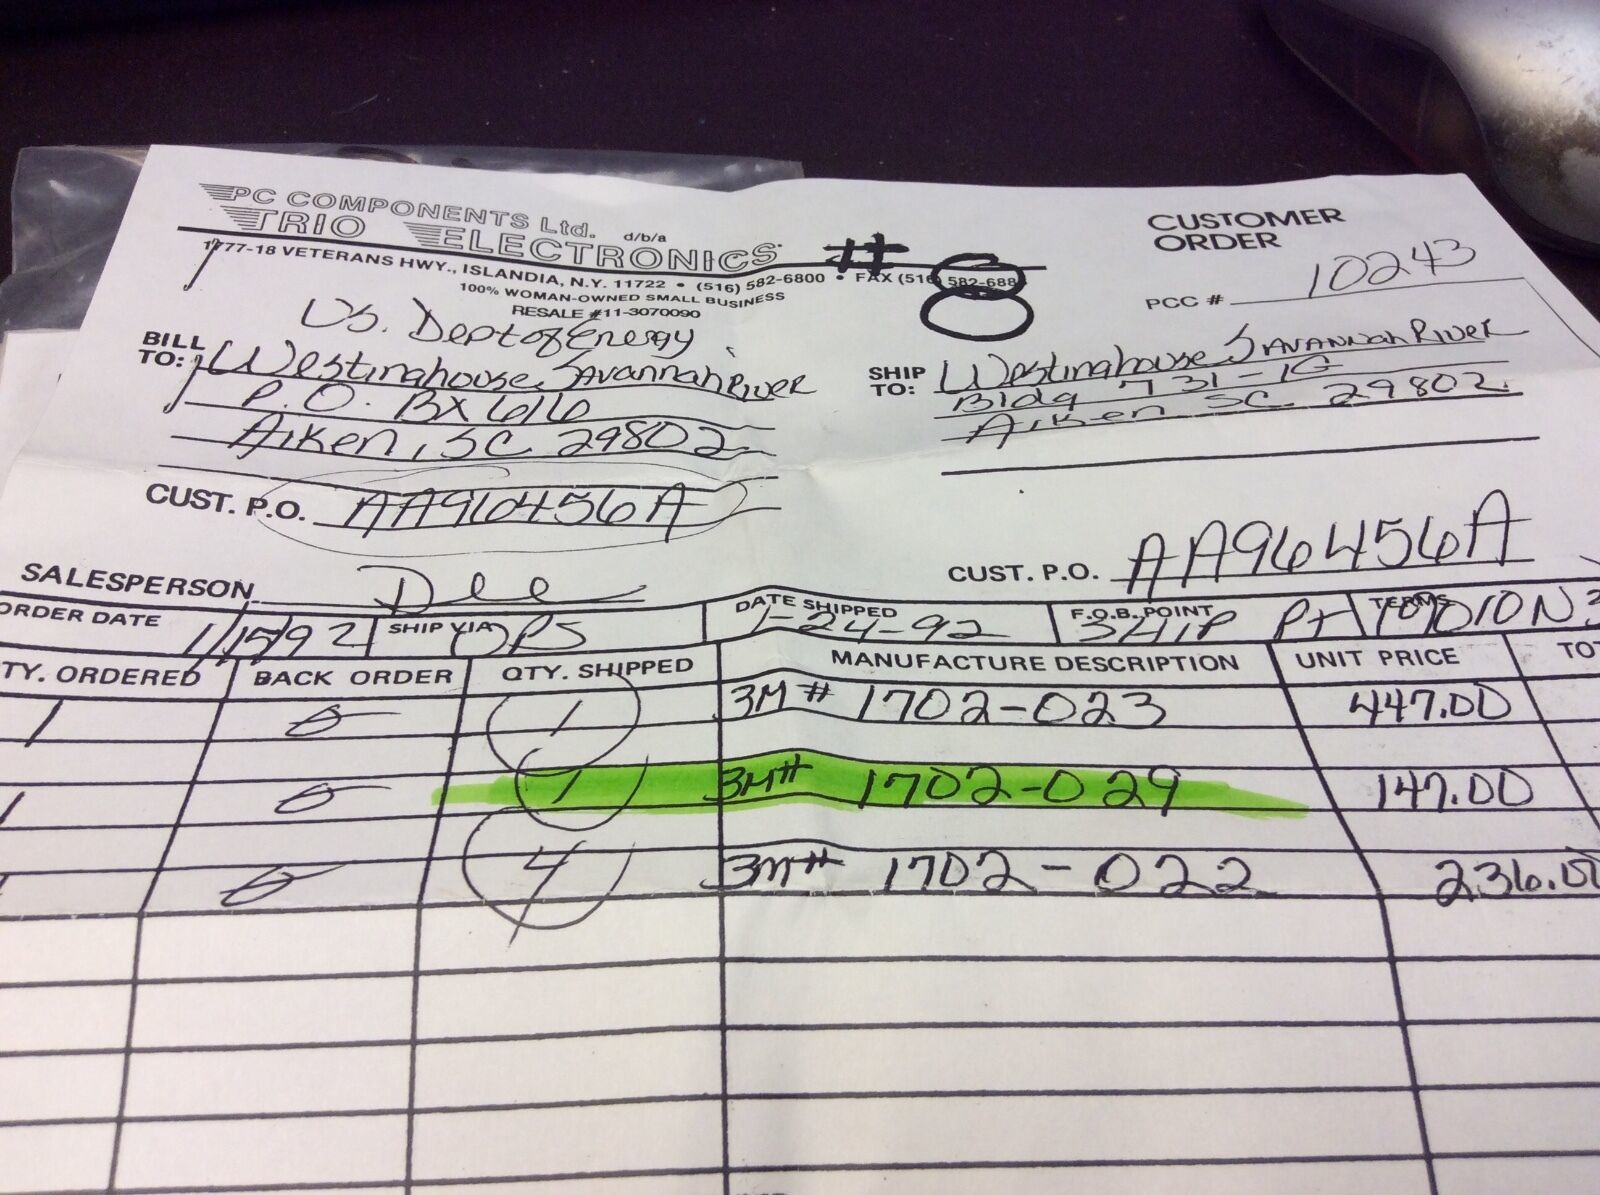 PC COMPONENTS Ltd. d/b/a
TRIO ELECTRONICS
1777-18 VETERANS HWY., ISLANDIA, N.Y. 11722 • (516) 582-6800 • FAX (516) 582-688
100% WOMAN-OWNED SMALL BUSINESS
RESALE #11-3070090
# 8
CUSTOMER
ORDER
PCC # 10243
US. Dept of Energy
BILL TO: Westinghouse Savannah River
P.O. BX 616
Aiken, SC 29802
SHIP TO: Westinghouse Savannah River
Bldg 731-1G
Aiken SC 29802
CUST. P.O. AA96456A
CUST. P.O. AA96456A
SALESPERSON Dee
ORDER DATE 1/15/92 SHIP VIA UPS DATE SHIPPED 1-24-92 F.O.B. POINT SHIP Pt TERMS
TY. ORDERED BACK ORDER QTY. SHIPPED MANUFACTURE DESCRIPTION UNIT PRICE TO
1 0 1 3M# 1702-023 447.00
1 0 1 3M# 1702-029 147.00
0 4 3M# 1702-022 236.00